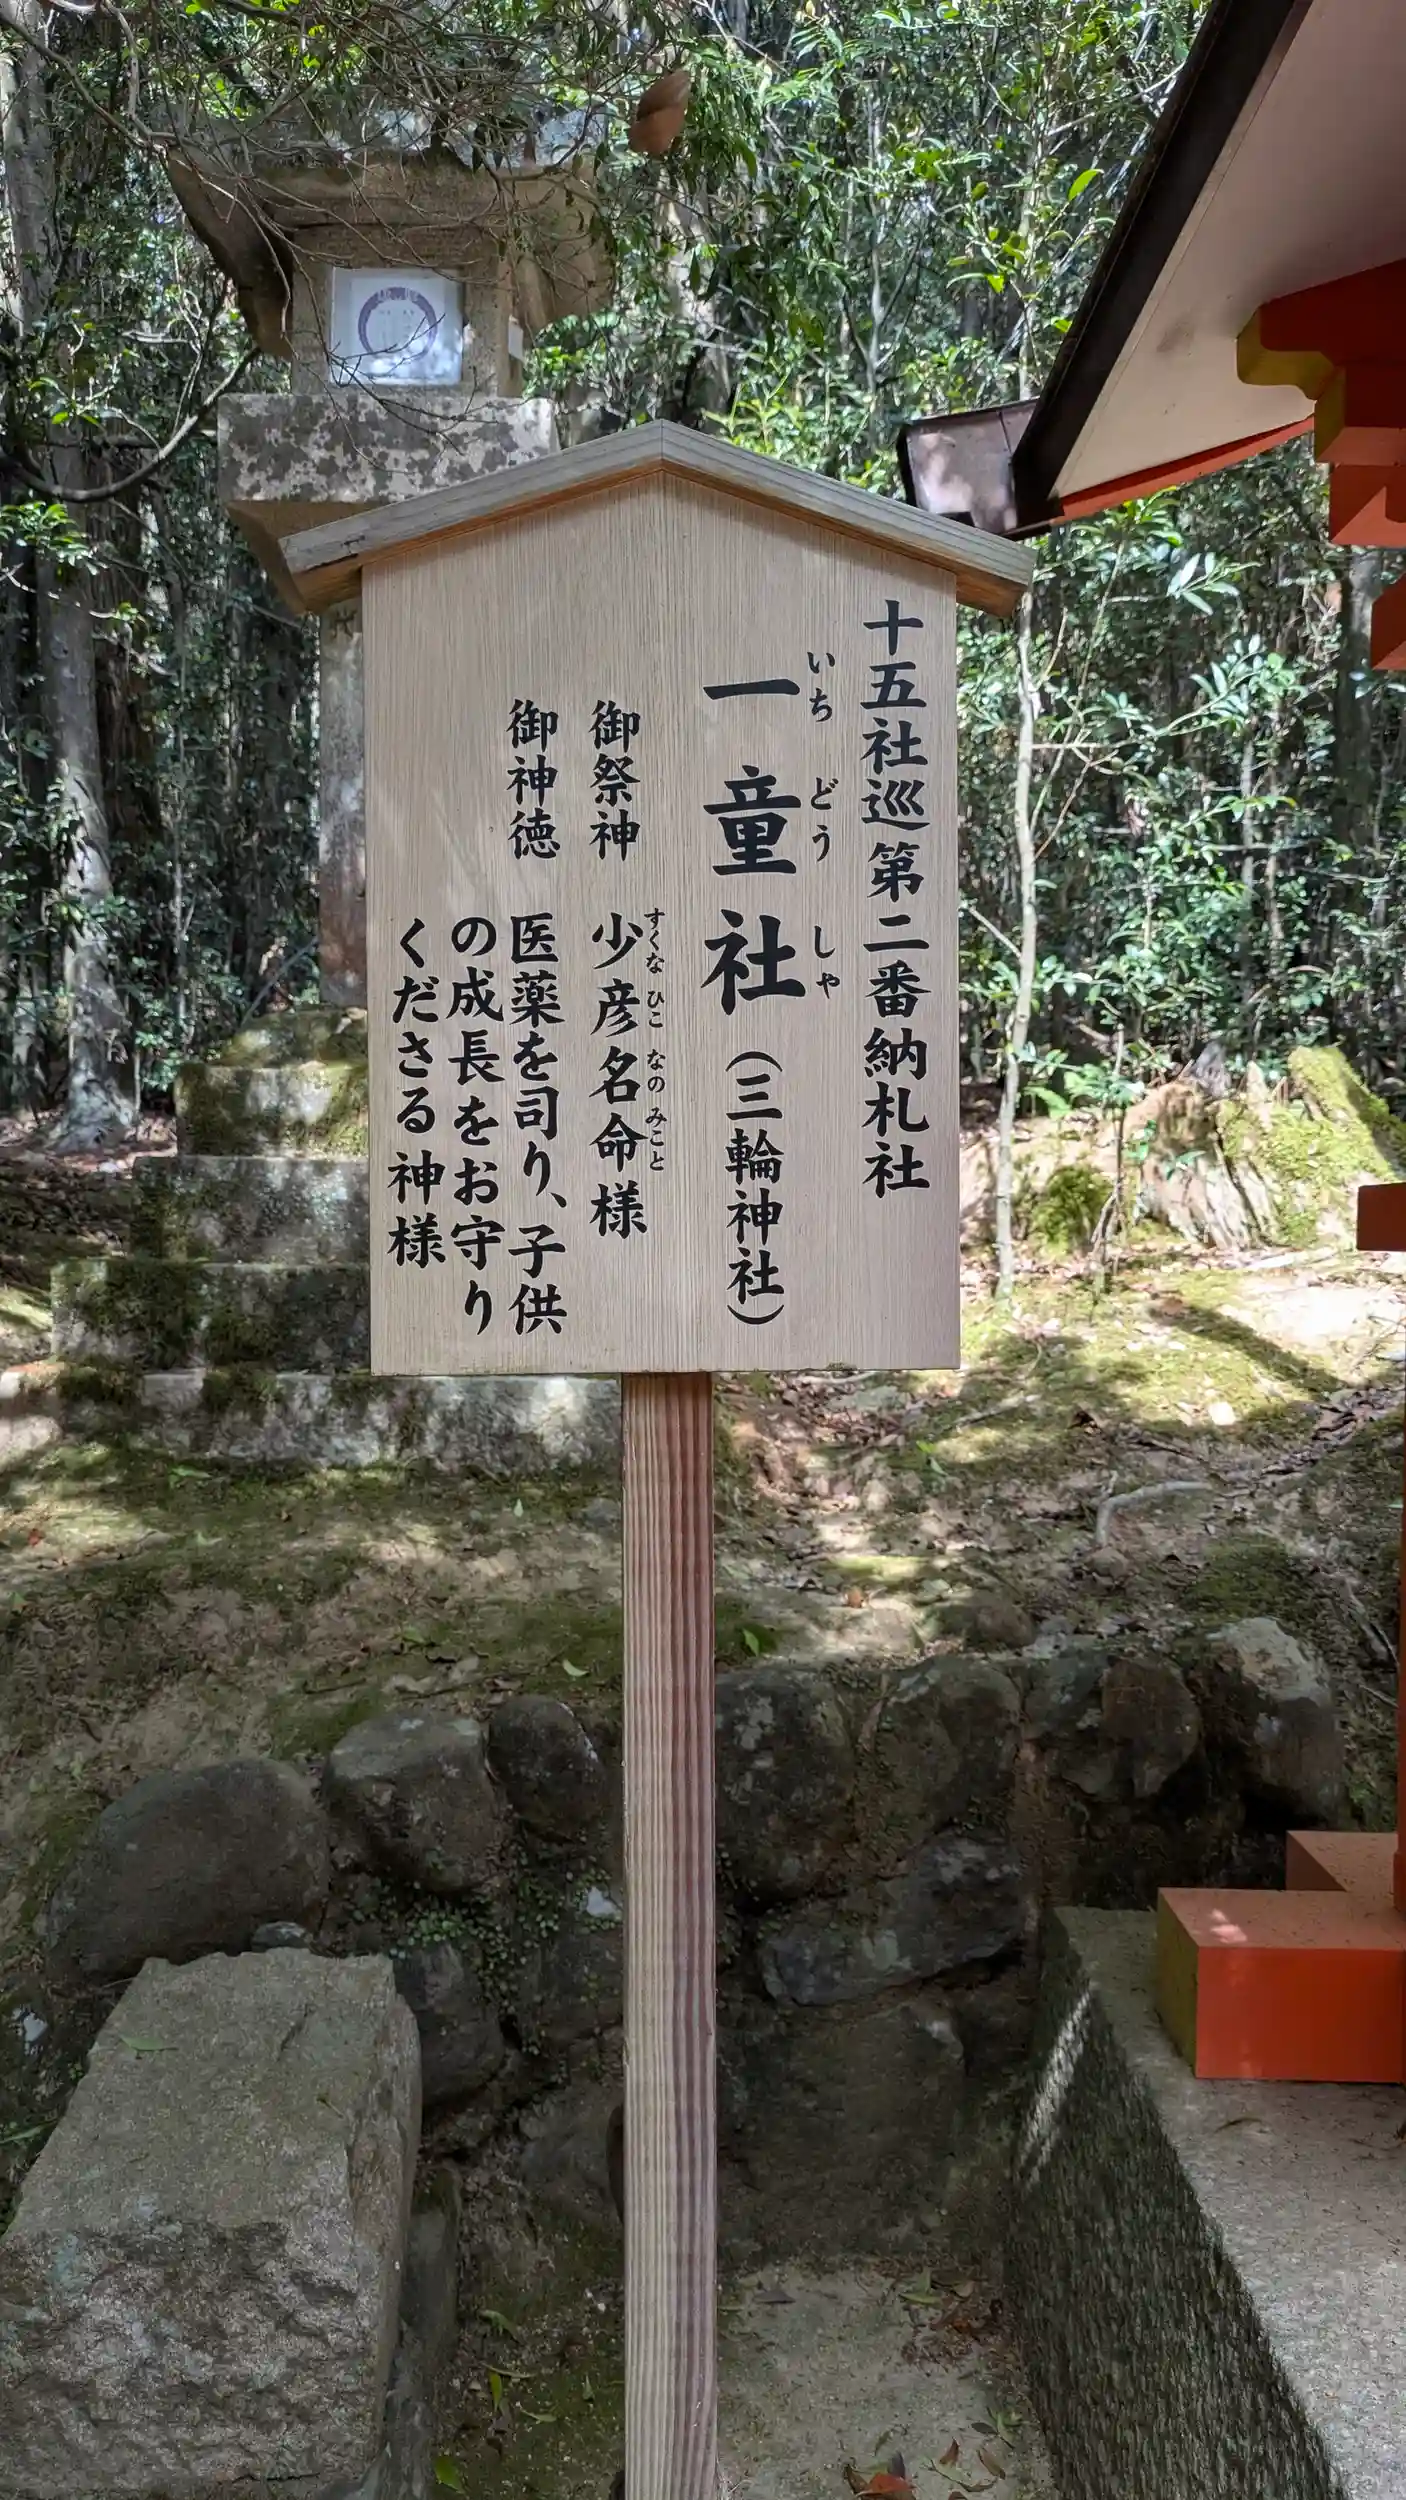 十五社巡第二番納札社
一童社（三輪神社）
いちどうしゃ
御祭神 少彦名命様
すくなひこなのみこと
御神徳 医薬を司り、子供
の成長をお守り
くださる神様